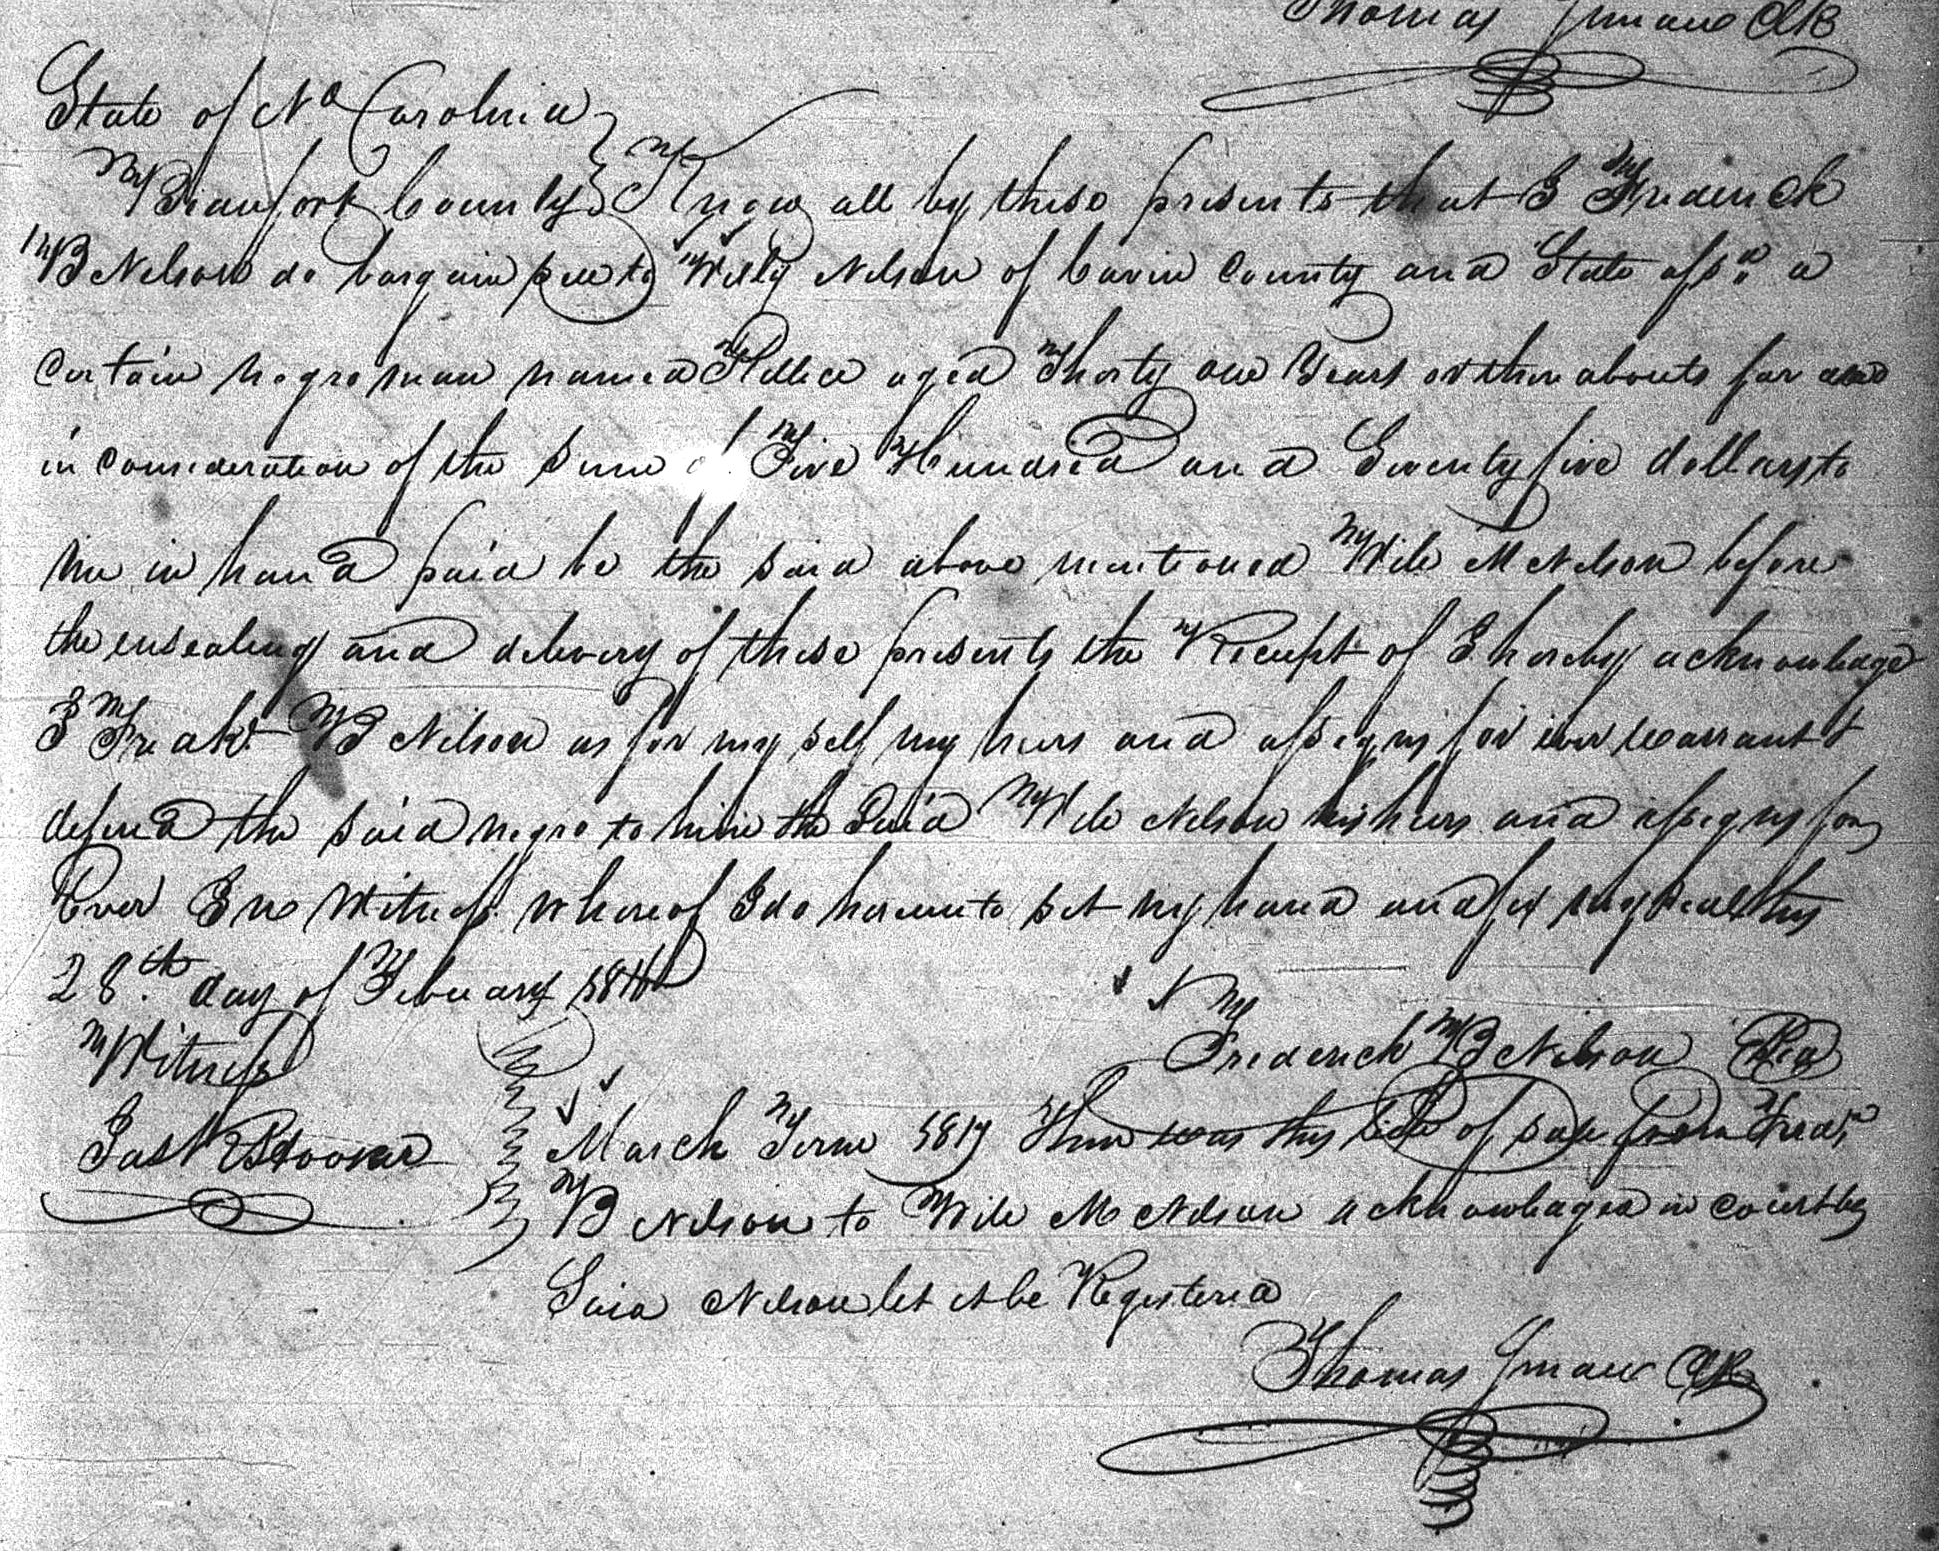 Thomas Smaw Clk
State of No Carolina
Beaufort County Know all by these presents that I Frederick
B Nelson do bargain sell to Wiley Nelson of Cravin County and State afsd a
Certain negro man named aged Thirty one Years or there abouts for and
in consideration of the Sum of Five Hundred and Seventy five dollars to
me in hand paid be the said above mentioned Wile M Nelson before
the ensealing and delivery of these presents the Receipt of I hereby acknowledge
I Fredk B Nelson as for my self my heirs and assigns for ever warrant &
defend the said negro to him the Said Wile Nelson his heirs and assigns for
Ever In Witness whereof I do hereunto set my hand and fix my seal this
28th day of Febuary
Witness Frederick B Nelson
March Term 1817 Then was this bill of sale from Fredk
B Nelson to Wile M Nelson acknowledged in court by
Said Nelson let it be Registerd
Thomas Smaw Clk